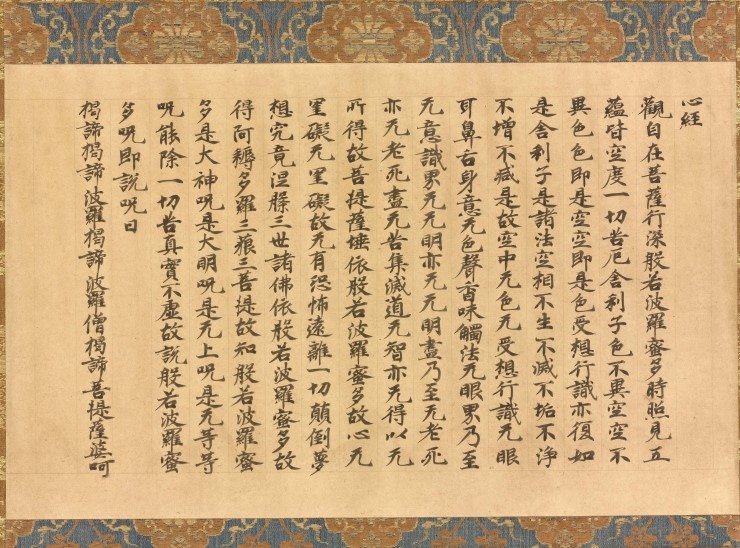 心経
觀自在菩薩行深般若波羅蜜多時照見五
蘊皆空度一切苦厄舍利子色不異空空不
異色色即是空空即是色受想行識亦復如
是舍利子是諸法空相不生不滅不垢不淨
不增不减是故空中无色无受想行識无眼
耳鼻舌身意无色聲香味觸法无眼界乃至
无意識界无无明亦无无明盡乃至无老死
亦无老死盡无苦集滅道无智亦无得以无
所得故菩提薩埵依般若波羅蜜多故心无
罣礙无罣礙故无有恐怖遠離一切顛倒夢
想究竟涅槃三世諸佛依般若波羅蜜多故
得阿耨多羅三藐三菩提故知般若波羅蜜
多是大神呪是大明呪是无上呪是无等等
呪能除一切苦真實不虛故說般若波羅蜜
多呪即說呪曰
揭諦揭諦波羅揭諦波羅僧揭諦菩提薩婆呵